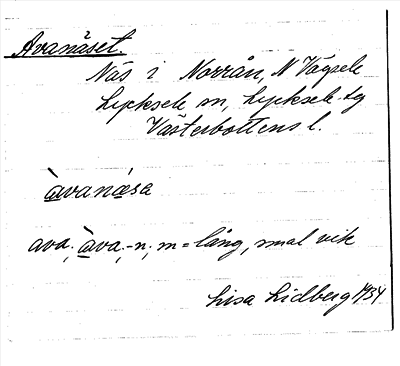 Avanäset.
Näs i Norrån, N Vägsele
Lycksele sn, Lycksele tg
Västerbottens l.
àvanǿsa
ava, àva, -n, m = lång, smal vik
Lisa Lidberg 1934